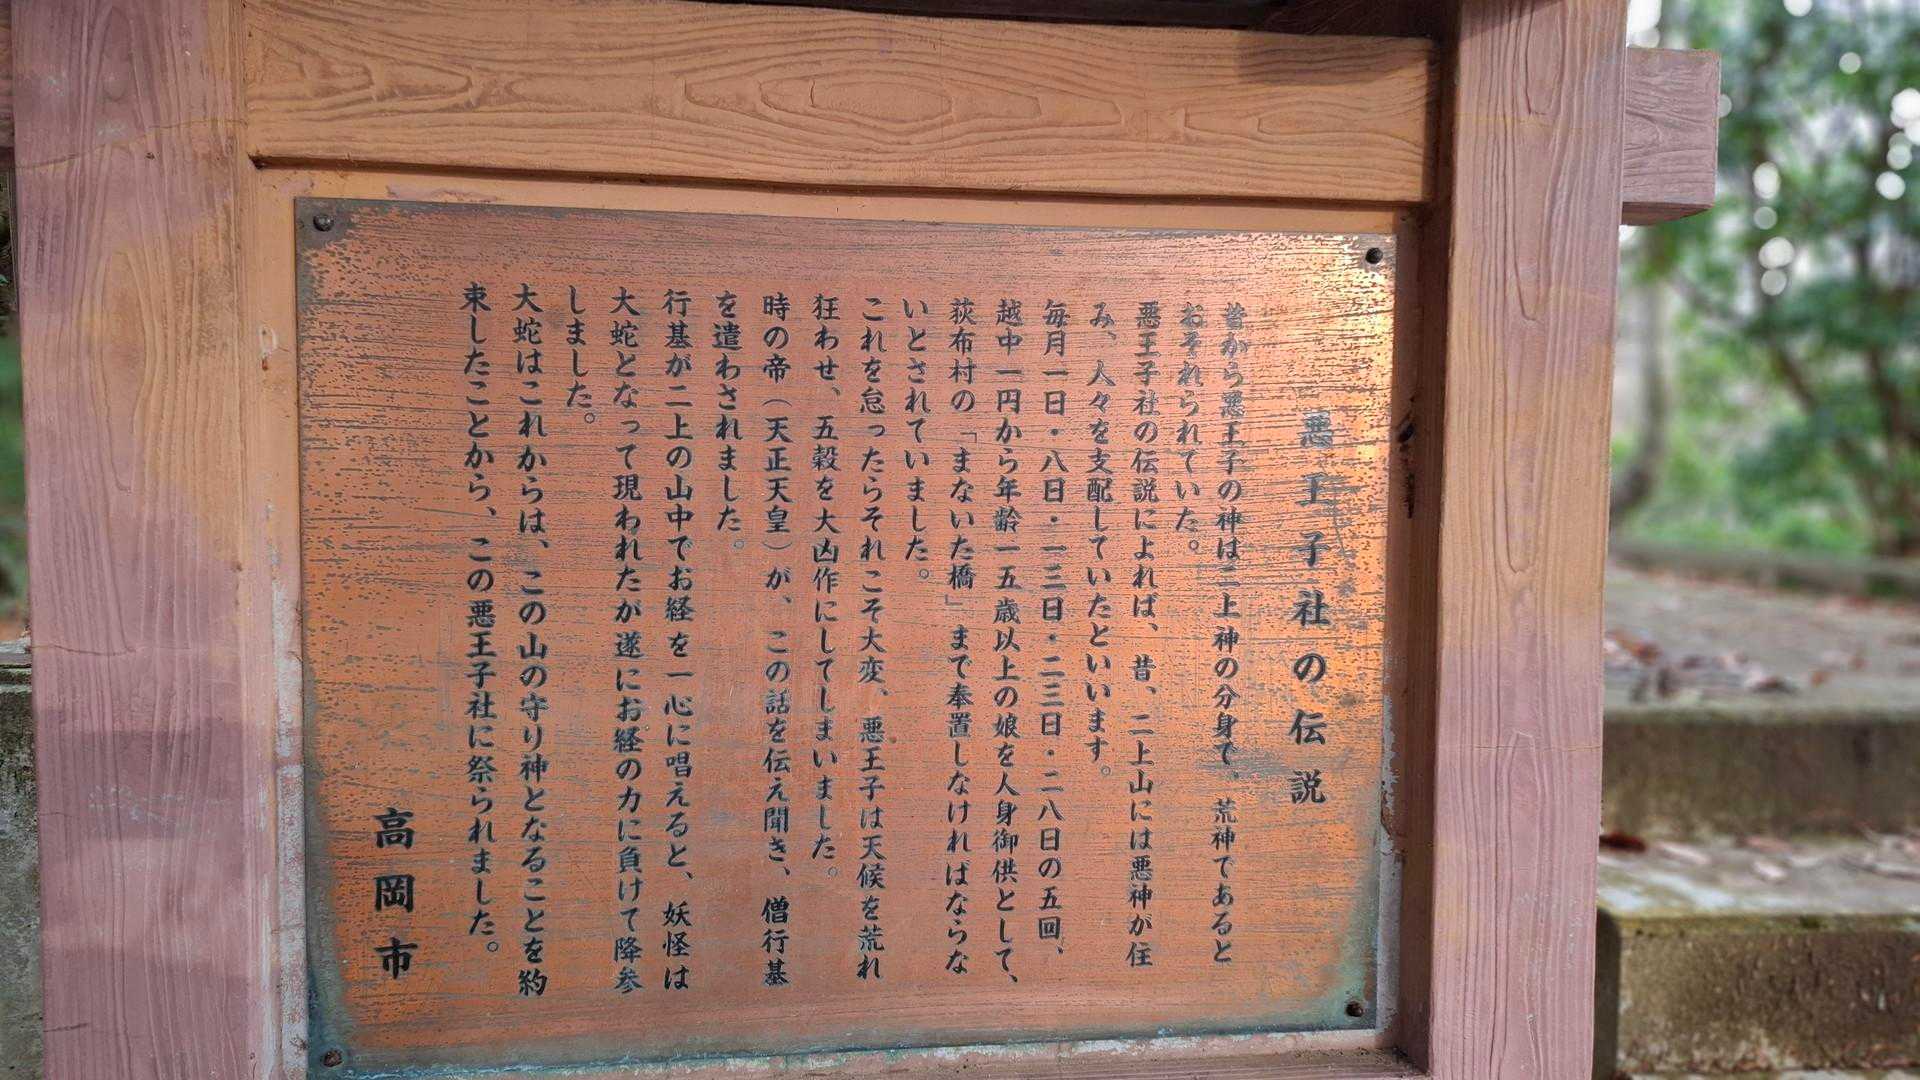 悪王子社の伝説
昔から悪王子の神は二上神の分身で、荒神であると
おそれられていた。
悪王子社の伝説によれば、昔、二上山には悪神が住
み、人々を支配していたといいます。
毎月一日・八日・一三日・二三日・二八日の五回、
越中一円から年齢一五歳以上の娘を人身御供として、
荻布村の「まないた橋」まで奉置しなければならな
いとされていました。
これを怠ったらそれこそ大変、悪王子は天候を荒れ
狂わせ、五穀を大凶作にしてしまいました。
時の帝（天正天皇）が、この話を伝え聞き、僧行基
を遣わされました。
行基が二上の山中でお経を一心に唱えると、妖怪は
大蛇となって現われたが遂にお経の力に負けて降参
しました。
大蛇はこれからは、この山の守り神となることを約
束したことから、この悪王子社に祭られました。
高岡市